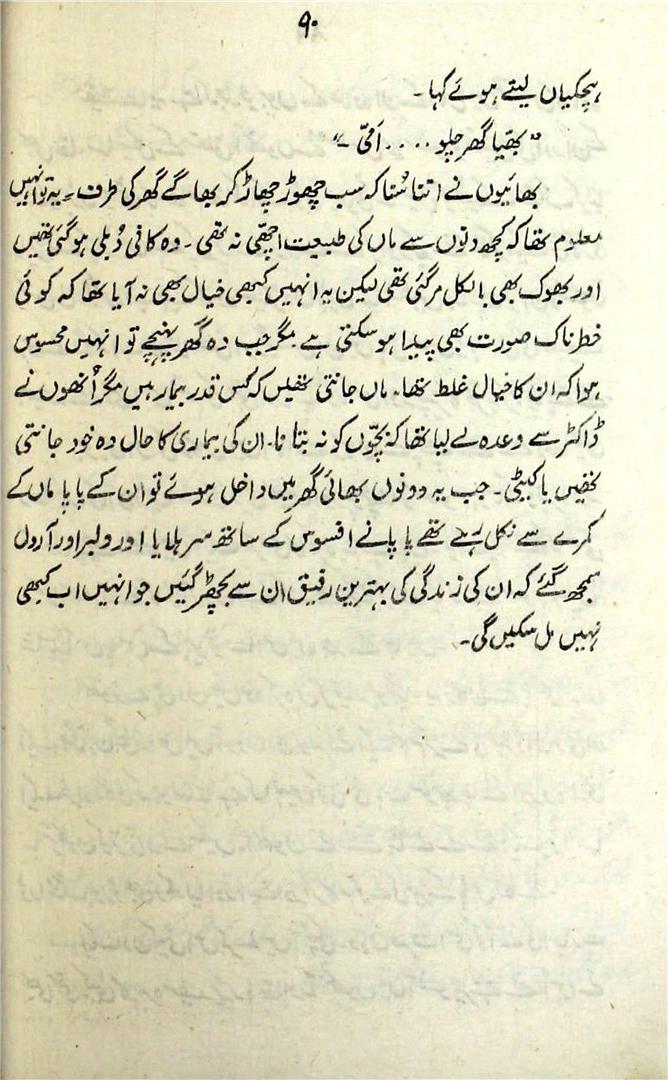 ۹۰
ہچکیاں لیتے ہوئے کہا۔
"بھیّا گھر چلو .... اَمّی۔"
بھائیوں نے اتنا سُنا کہ سب چھوڑ چھاڑ کر بھاگے گھر کی طرف۔ یہ تو انہیں
معلوم تھا کہ کچھ دنوں سے ماں کی طبیعت اچھّی نہ تھی۔ وہ کافی دُبلی ہوگئی تھیں
اور بھوک بھی بالکل مرگئی تھی لیکن یہ انہیں کبھی خیال بھی نہ آیا تھا کہ کوئی
خطرناک صورت بھی پیدا ہوسکتی ہے مگر جب وہ گھر پہنچے تو انہیں محسوس
ہوا کہ ان کا خیال غلط تھا۔ ماں جانتی تھیں کہ کس قدر بیمار ہیں مگر اُنھوں نے
ڈاکٹر سے وعدہ لے لیا تھا کہ بچّوں کو نہ بتانا۔ ان کی بیماری کا حال وہ خود جانتی
تھیں یا کیٹی۔ جب یہ دونوں بھائی گھر میں داخل ہوئے تو ان کے پاپا ماں کے
کمرے سے نکل رہے تھے پاپا نے افسوس کے ساتھ سر ہلایا اور ولبر اور آرول
سمجھ گئے کہ ان کی زندگی کی بہترین رفیق ان سے بچھڑ گئیں جو انہیں اب کبھی
نہیں مل سکیں گی۔